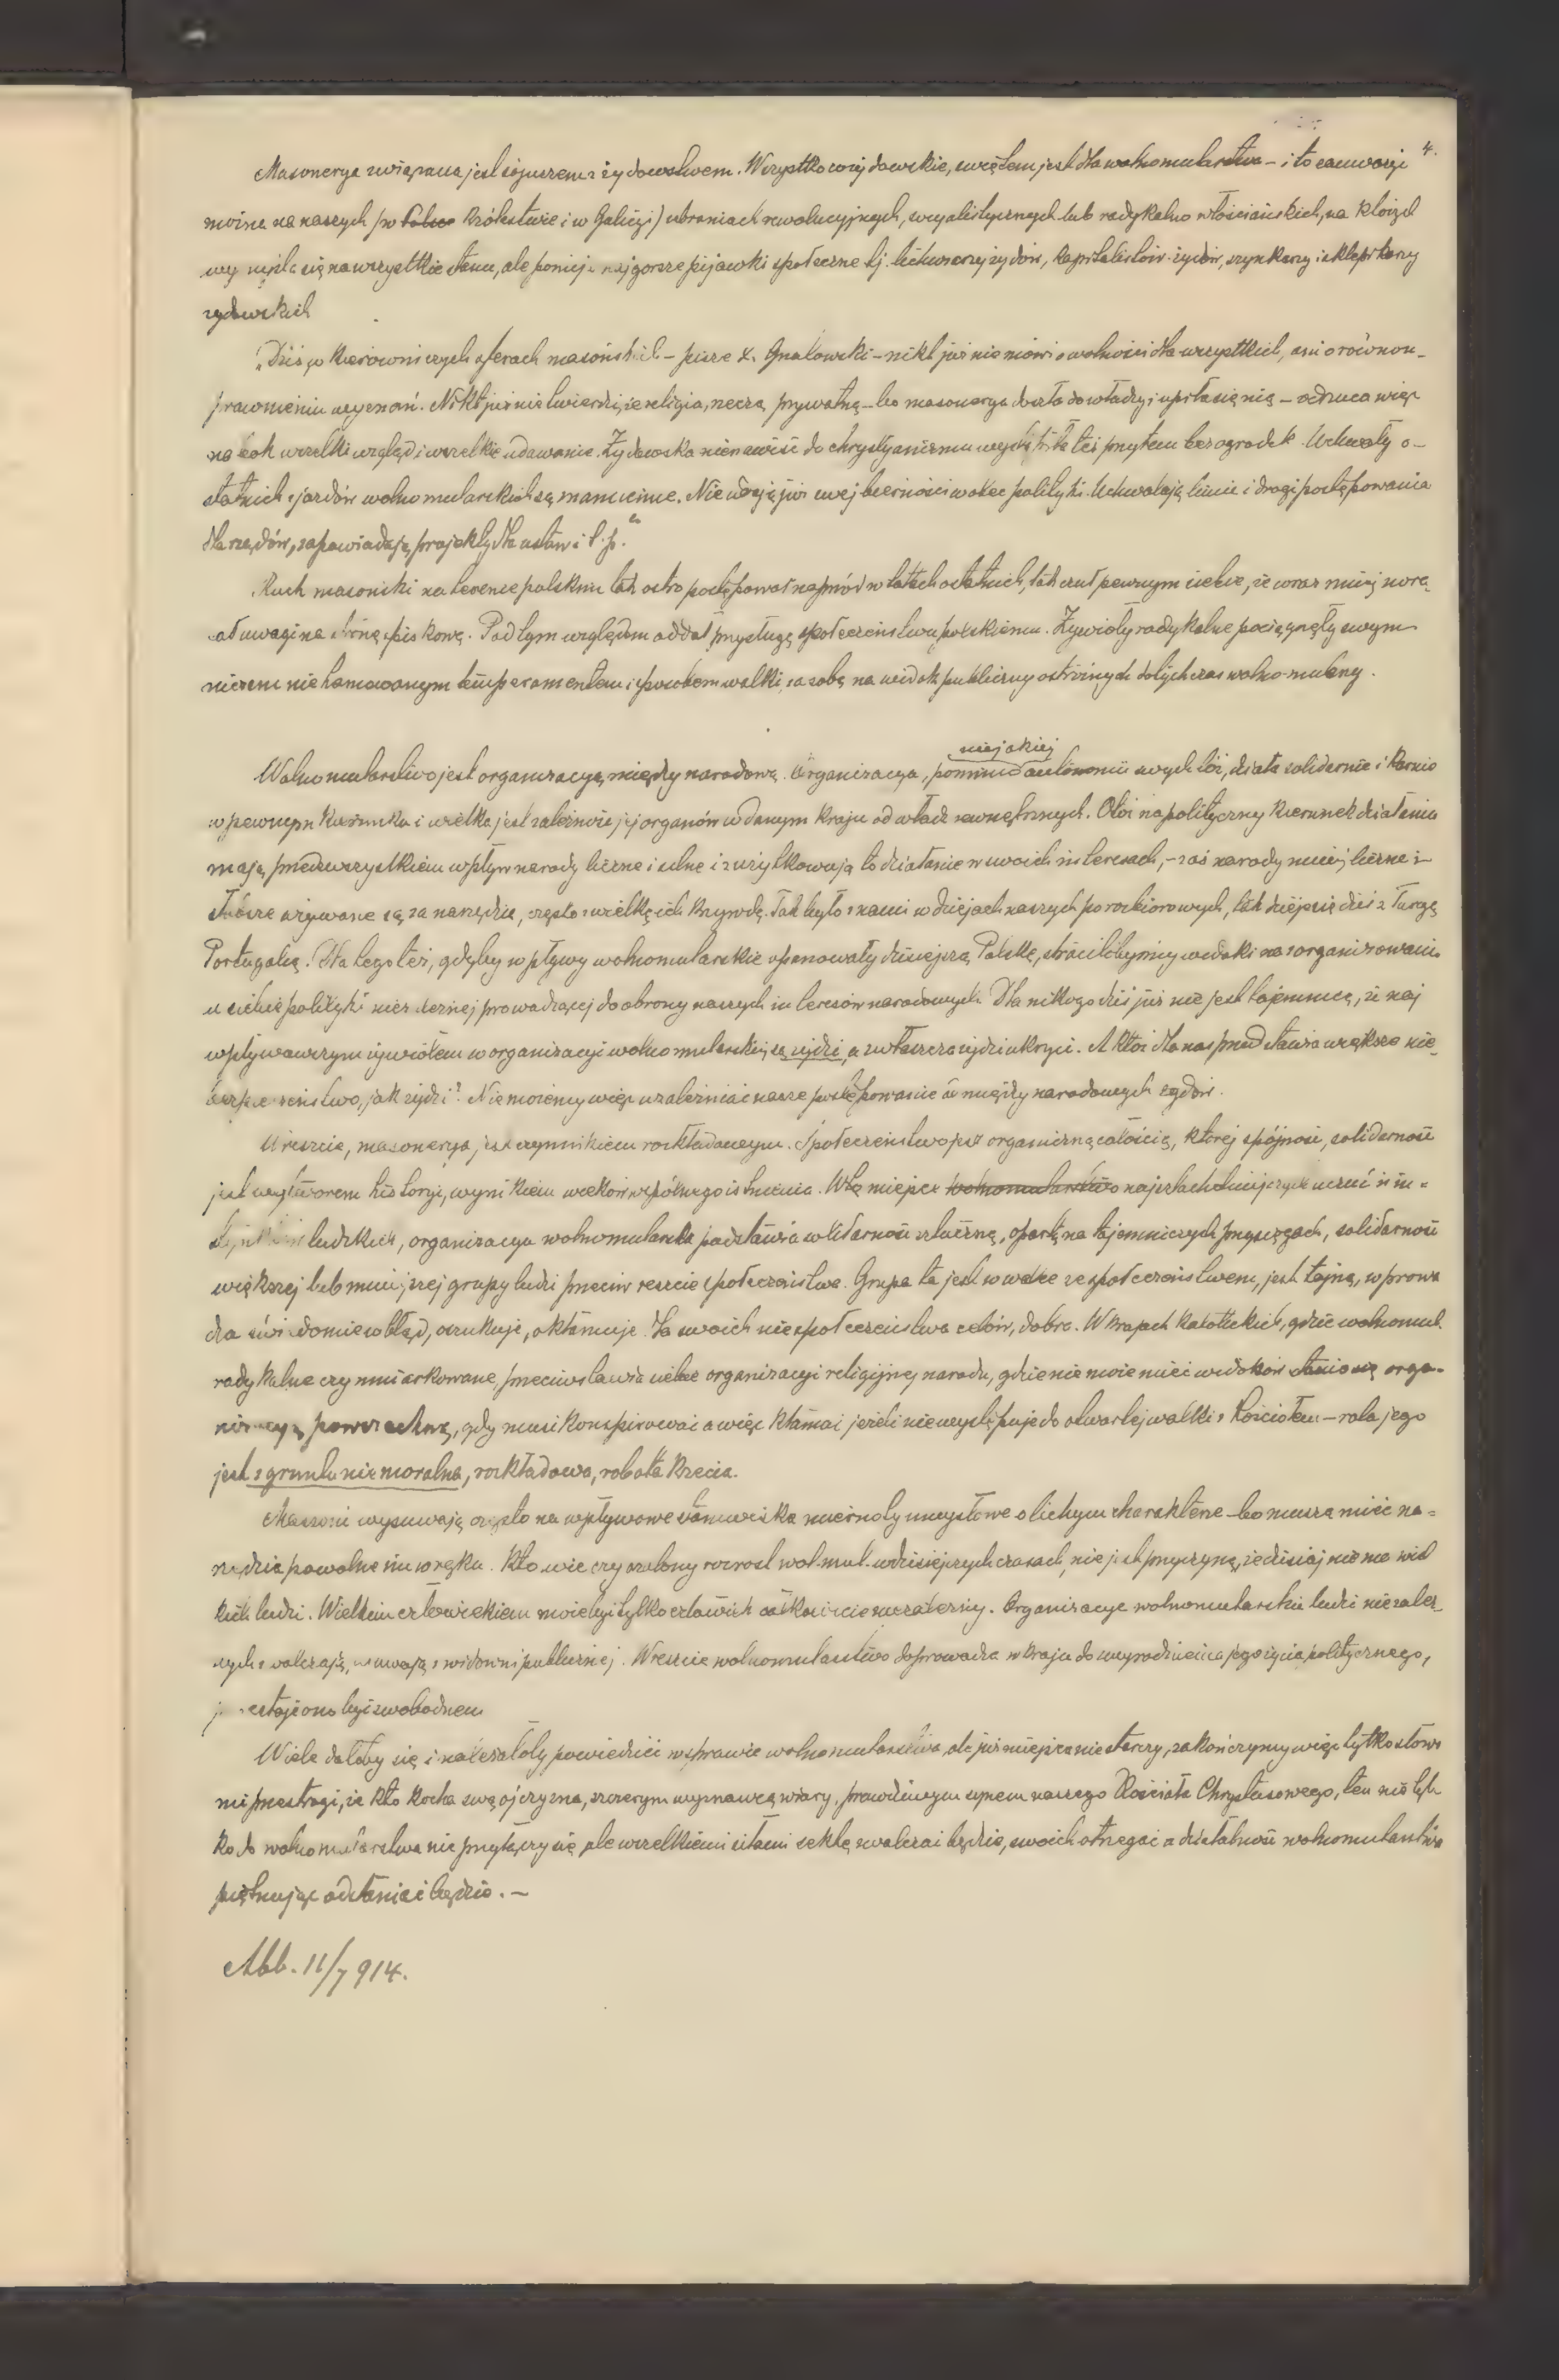 4.
Masonerya związana jest sojuszem z żydowstwem. Wszystko co żydowskie, świętem jest dla wolnomularstwa – i to zauważyć
można na naszych (w Królestwie i w Galicyi) zebraniach rewolucyjnych, socyalistycznych lub radykalno włościańskich, na których
wymyśla się na wszystkie stany, ale pomija najgorsze pijawki społeczne tj. lichwiarzy żydów, kapitalistów-żydów, szynkarzy i sklepikarzy
żydowskich
„Dziś w kierowniczych sferach masońskich – pisze X. Gnatowski – nikt już nie mówi o wolności dla wszystkich, ani o równou-
prawnieniu wyznań. Nikt już nie twierdzi, że religia, rzeczą prywatną – bo masonerya doszła do władzy i upiła się nią – odrzuca więc
na bok wszelki wzgląd i wszelkie udawanie. Żydowska nienawiść do chrystyanizmu wystąpiła też przytem bez ogródek. Uchwały o-
statnich zjazdów wolnomularskich są znamienne. Nie udają już swej bierności wobec polityki. Uchwalają linie i drogi postępowania
dla rządów, zapowiadają projekty dla ustaw i t. p."
Ruch masoński na terenie polskim tak ostro postępował naprzód w latach ostatnich, tak czuł pewnym siebie, że coraz mniej zwra-
cał uwagi na stronę spiskową. Pod tym względem oddał przysługę społeczeństwu polskiemu. Żywioły radykalne pociągnęły swym
niczem niehamowanym temperamentem i sposobem walki, za sobą na widok publiczny ostrożnych dotychczas wolno-mularzy.
niejakiej
Wolnomularstwo jest organizacyą międzynarodową. Organizacya, pomimo autonomii swych lóż, działa solidarnie i karnie
w pewnym kierunku i wielka jest zależność jej organów w danym kraju od władz zewnętrznych. Otóż na polityczny kierunek działania
mają przedewszystkiem wpływ narody liczne i silne i zużytkowują to działanie w swoich interesach, – zaś narody mniej liczne i
słabsze używane są za narzędzie, często z wielką ich krzywdą. Tak było z nami w dziejach naszych porozbiorowych, tak dzieje się dziś z Turcyą
Portugalią. Dla tego też, gdyby wpływy wolnomularskie opanowały dzisiejszą Polskę, stracilibyśmy widoki na zorganizowanie
u siebie polityki niezależnej prowadzącej do obrony naszych interesów narodowych. Dla nikogo dziś już nie jest tajemnicą, że naj
wpływowszym żywiołem w organizacyi wolnomularskiej są żydzi, a zwłaszcza żydzi ukryci. A któż dla nas przedstawia większe nie-
bezpieczeństwo, jak żydzi? Nie możemy więc uzależniać nasze postępowanie od międzynarodowych żydów.
Wreszcie, masonerya jest czynnikiem rozkładowym. Społeczeństwo jest organiczną całością, której spójność, solidarność
jest wytworem historyi, wynikiem wieków wspólnego istnienia. W to miejsce wolnomularstwo najszlachetniejszych uczuć i in-
stynktów ludzkich, organizacya wolnomularska podstawia solidarność sztuczną, opartą na tajemniczych przysięgach, solidarność
większej lub mniejszej grupy ludzi przeciw reszcie społeczeństwa. Grupa ta jest w walce ze społeczeństwem, jest tajną, wprowa
dza świadomie w błąd, oszukuje, okłamuje dla swoich nie społeczeństwa celów, dobra. W krajach katolickich, gdzie wolnomul.
radykalne czy umiarkowane, przeciwstawia siebie organizacyi religijnej narodu, gdzie nie może mieć widoków stania się orga-
nizacyą powszechną, gdy musi konspirować a więc kłamać jeżeli nie występuje do otwartej walki z Kościołem – rola jego
jest z gruntu niemoralna, rozkładowa, robota krecia.
Masoni wysuwają często na wpływowe stanowiska miernoty umysłowe o lichym charakterze – bo muszą mieć na-
rzędzia powolne im w ręku. Kto wie czy szalony rozrost wol. mul. w dzisiejszych czasach, nie jest przyczyną, że dzisiaj nie ma wiel
kich ludzi. Wielkim człowiekiem może być tylko człowiek całkowicie niezależny. Organizacye wolnomularskie ludzi niezależ-
nych zwalczają, usuwają z widowni publicznej. Wreszcie wolnomularstwo doprowadza w kraju do wyrodnienia jego życia politycznego,
przestaje ono być swobodnem
Wiele dałoby się i należałoby powiedzieć w sprawie wolnomularstwa, ale już miejsca nie starczy, zakończymy więc tylko słowa
mi przestrogi, że kto kocha swą ojczyznę, szczerym wyznawcą wiary, prawdziwym synem naszego Kościoła Chrystusowego, ten nie tyl
ko do wolnomularstwa nie przyłączy się ale wszelkiemi siłami sektę zwalczać będzie, swoich ostrzegać a działalność wolnomularstwa
piętnując odsłaniać będzie. –
Abb. 11/7 914.